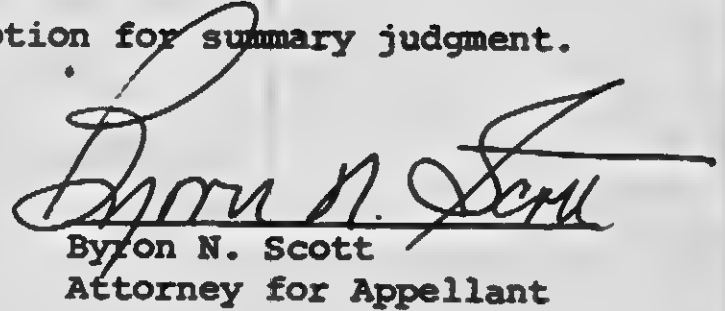 otion for summary judgment.
Byron N. Scott
Byron N. Scott
Attorney for Appellant